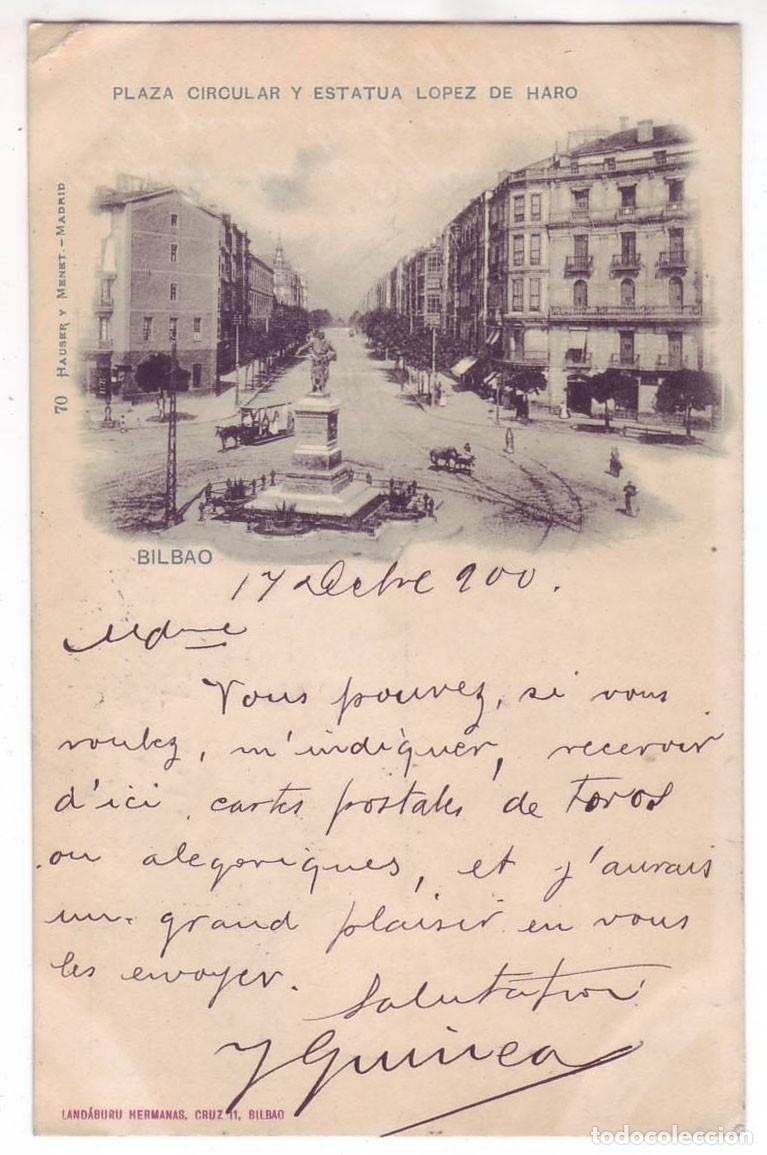 PLAZA CIRCULAR Y ESTATUA LOPEZ DE HARO
70 HAUSER Y MENET.-MADRID
BILBAO
17 Dcbre 900.
Mdme
Vous pouvez, si vous
voulez, m'indiquer, recevoir
d'ici cartes postales de Toros
ou alegoriques, et j'aurais
un grand plaisir en vous
les envoyer.
Salutation
Y Guinea
LANDÁBURU HERMANAS, CRUZ 11, BILBAO
todocoleccion